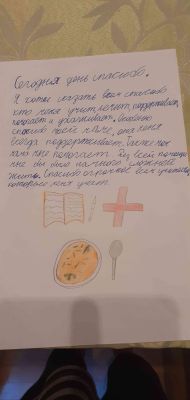 Сегодня день спасибо.
Я хотел сказать всем спасибо
кто меня учит, лечит, поддерживает,
помогает и ухаживает. Особенно
спасибо моей маме, она меня
всегда поддерживает. Также
мне помогает. Без всей помощи
мне бы было намного сложнее
жить. Спасибо огромное всем учителям,
которые меня учат.